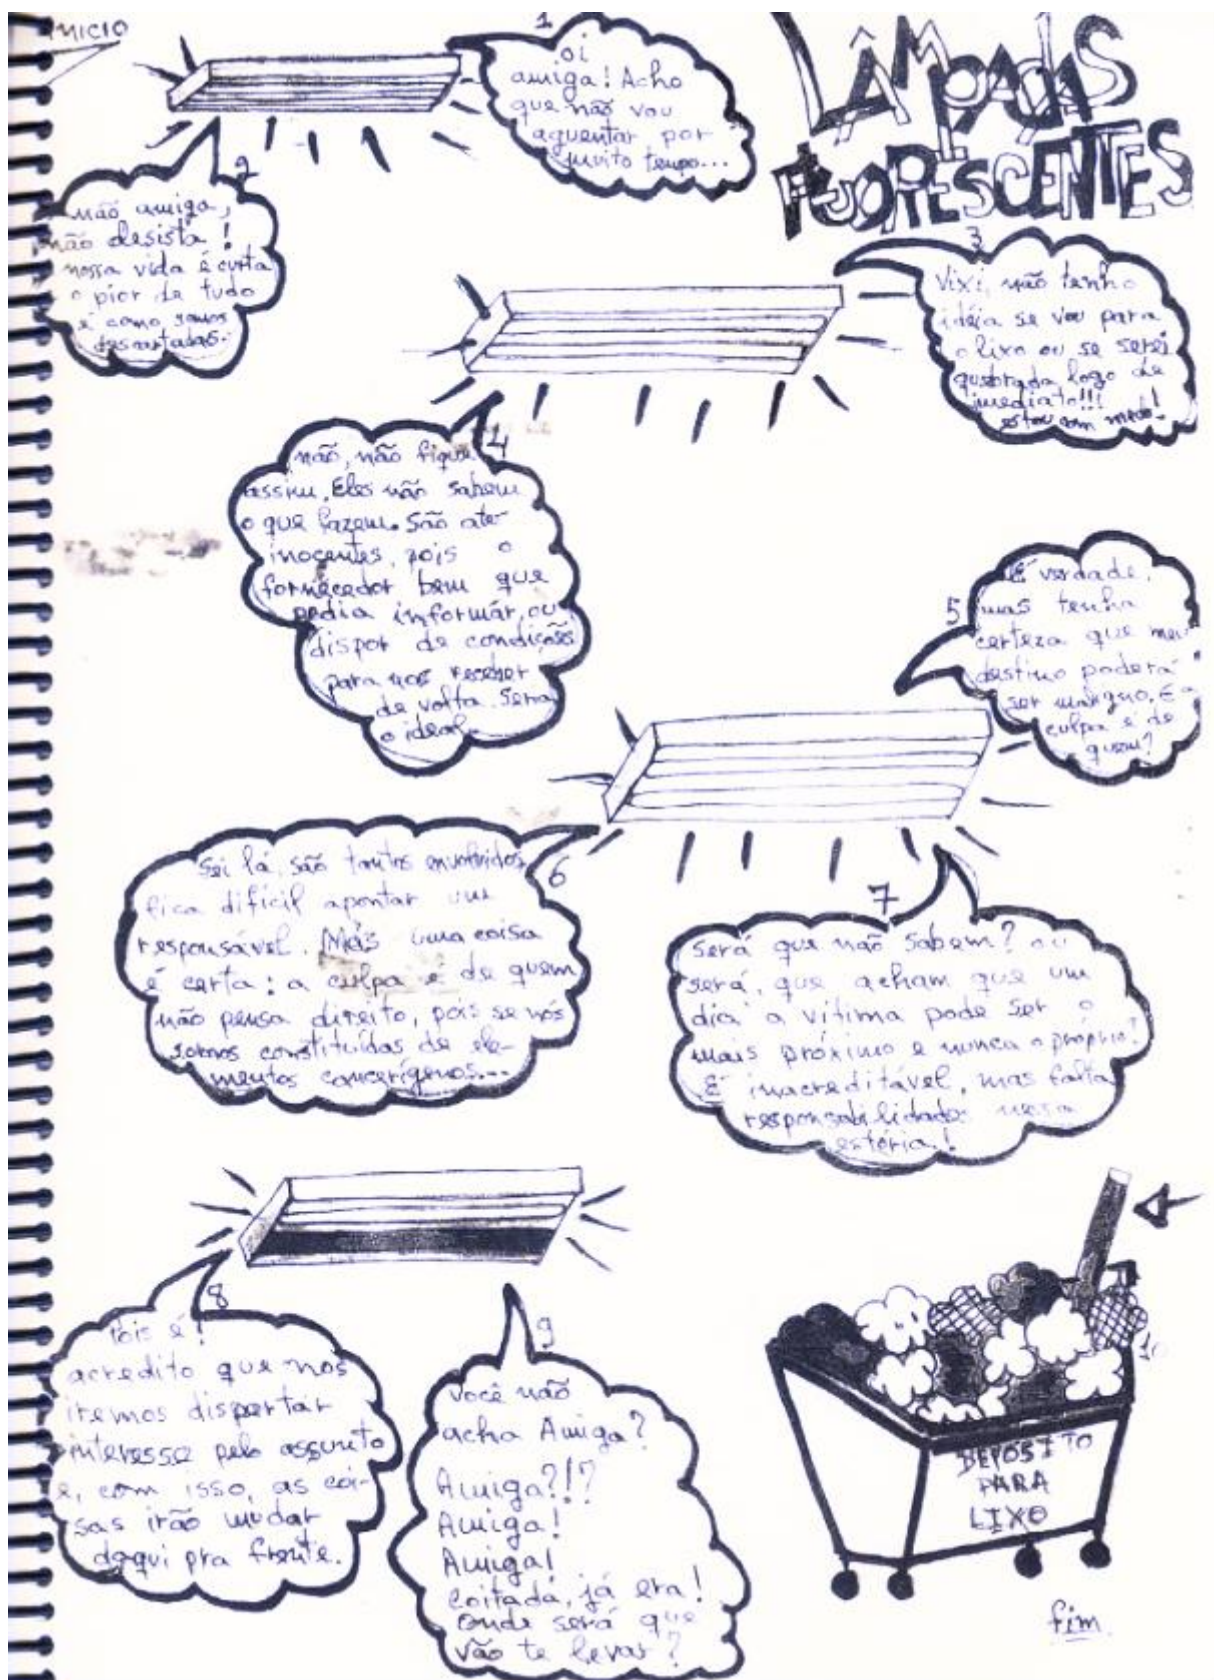 INICIO
LÂMPADAS
FLUORESCENTES
1
oi
amiga! Acho
que não vou
aguentar por
muito tempo...
2
não amiga,
não desista!
nossa vida é curta
o pior de tudo
é como somos
descartadas.
3
Vixi, não tenho
idéia se vou para
o lixo ou se serei
quebrada logo de
imediato!!!
estou com medo!
4
não, não fique
assim. Eles não sabem
o que fazem. São até
inocentes, pois o
fornecedor bem que
podia informar, ou
dispor de condições
para nos receber
de volta. Seria
o ideal.
5
É verdade,
mas tenha
certeza que meu
destino poderá
ser maligno. E a
culpa é de
quem?
6
Sei lá, são tantos envolvidos
fica difícil apontar um
responsável. Mas uma coisa
é certa: a culpa é de quem
não pensa direito, pois se nós
somos constituídas de ele-
mentos cancerígenos...
7
será que não sabem? ou
será, que acham que um
dia a vítima pode ser o
mais próximo e nunca o próprio!
É inacreditável, mas falta
responsabilidades nessa
estória!
8
Pois é!
acredito que nos
iremos dispertar
interesse pelo assunto
e, com isso, as coi-
sas irão mudar
daqui pra frente.
9
Você não
acha Amiga?
Amiga?!?
Amiga!
Amiga!
Coitada, já era!
Onde será que
vão te levar?
10
DEPOSITO
PARA
LIXO
fim